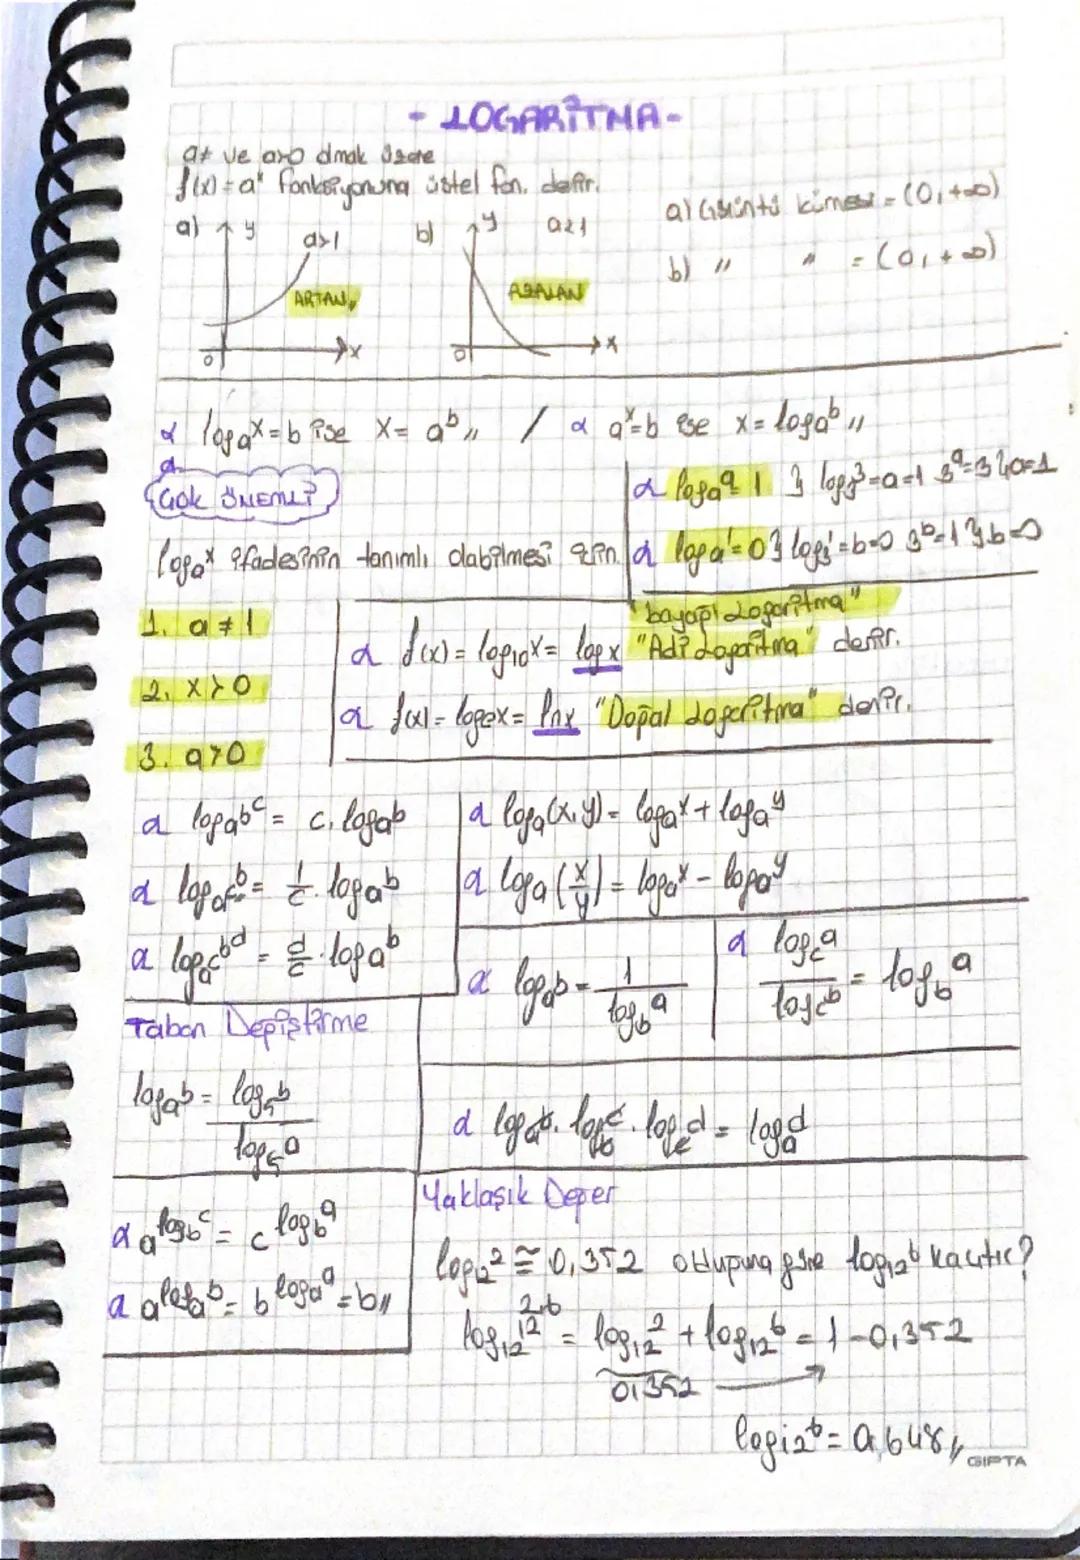 - LOGARİTMA -
a≠ ve a>0 olmak üzere
f(x) = aˣ fonksiyonuna üstel fon. denir.
a) y a>1 ARTAN,, 0 x
b) y a<1 AZALAN 0 x
a) Görüntü kümesi = (0, +∞)
b) " " = (0, +∞)
α logₐx = b ise x = aᵇ,, / α aˣ = b ise x = logₐb,,
Çok ÖNEMLİ
logₐx ifadesinin tanımlı olabilmesi için.
1. a ≠ 1
2. x > 0
3. a > 0
α logₐa = 1 } log₃3 = a = 1 3ᵃ = 3 } a = 1
α logₐ1 = 0 } log₃1 = b = 0 3ᵇ = 1 } b = 0
"bayağı Logaritma"
α f(x) = log₁₀x = log x "Adi Logaritma" denir.
α f(x) = logₑx = lnx "Doğal Logaritma" denir.
α logₐbᶜ = c. logₐb
α log_{aᶜ} b = 1/c . logₐb
α log_{aᶜ} bᵈ = d/c . logₐb
α logₐ(x.y) = logₐx + logₐy
α logₐ(x/y) = logₐx - logₐy
α logₐb = 1/log_b a
α log_c a / log_c b = log_b a
Taban Değiştirme
logₐb = log₅b / log₅a
α logₐb . log_b c . log_c d = logₐd
α a^{log_b c} = c^{log_b a}
α a^{logₐb} = b^{logₐa} = b,,
Yaklaşık Değer
log₁₂2 ≅ 0,352 olduğuna göre log₁₂6 kaçtır?
2.6
log₁₂12 = log₁₂2 + log₁₂6 = 1 - 0,352
0,352
log₁₂6 = 0,648,,
GIPTA